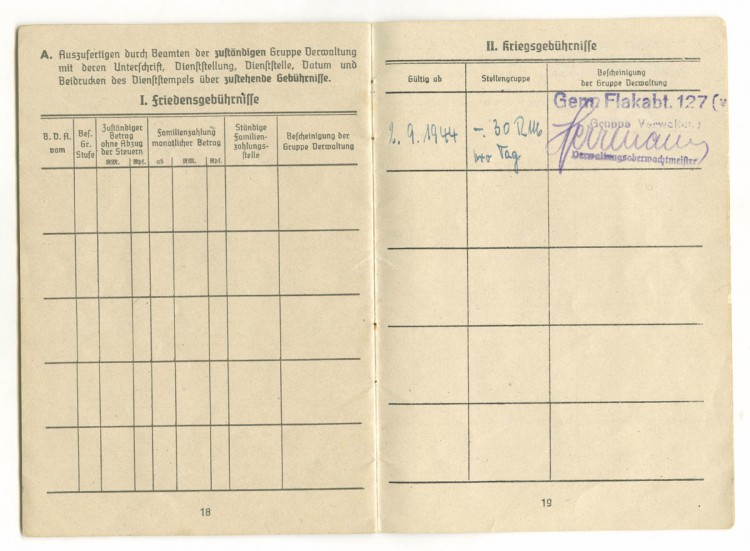 A. Auszufertigen durch Beamten der zuständigen Gruppe Verwaltung
mit deren Unterschrift, Dienststellung, Dienststelle, Datum und
Beidrucken des Dienststempels über zustehende Gebührnisse.
I. Friedensgebührnisse
B. D. A.
vom
Bes.
Gr.
Stufe
Zuständiger
Betrag
ohne Abzug
der Steuern
RM. Rpf.
Familienzahlung
monatlicher Betrag
ab RM. Rpf.
Ständige
Familien-
zahlungs-
stelle
Bescheinigung der
Gruppe Verwaltung
18
II. Kriegsgebührnisse
Gültig ab
Stellengruppe
Bescheinigung
der Gruppe Verwaltung
2. 9. 1944
-. 30 RM
pro Tag
Gem. Flakabt. 127 (v
Gruppe Verwaltung
Herrmann
Verwaltungsoberwachtmeister
19